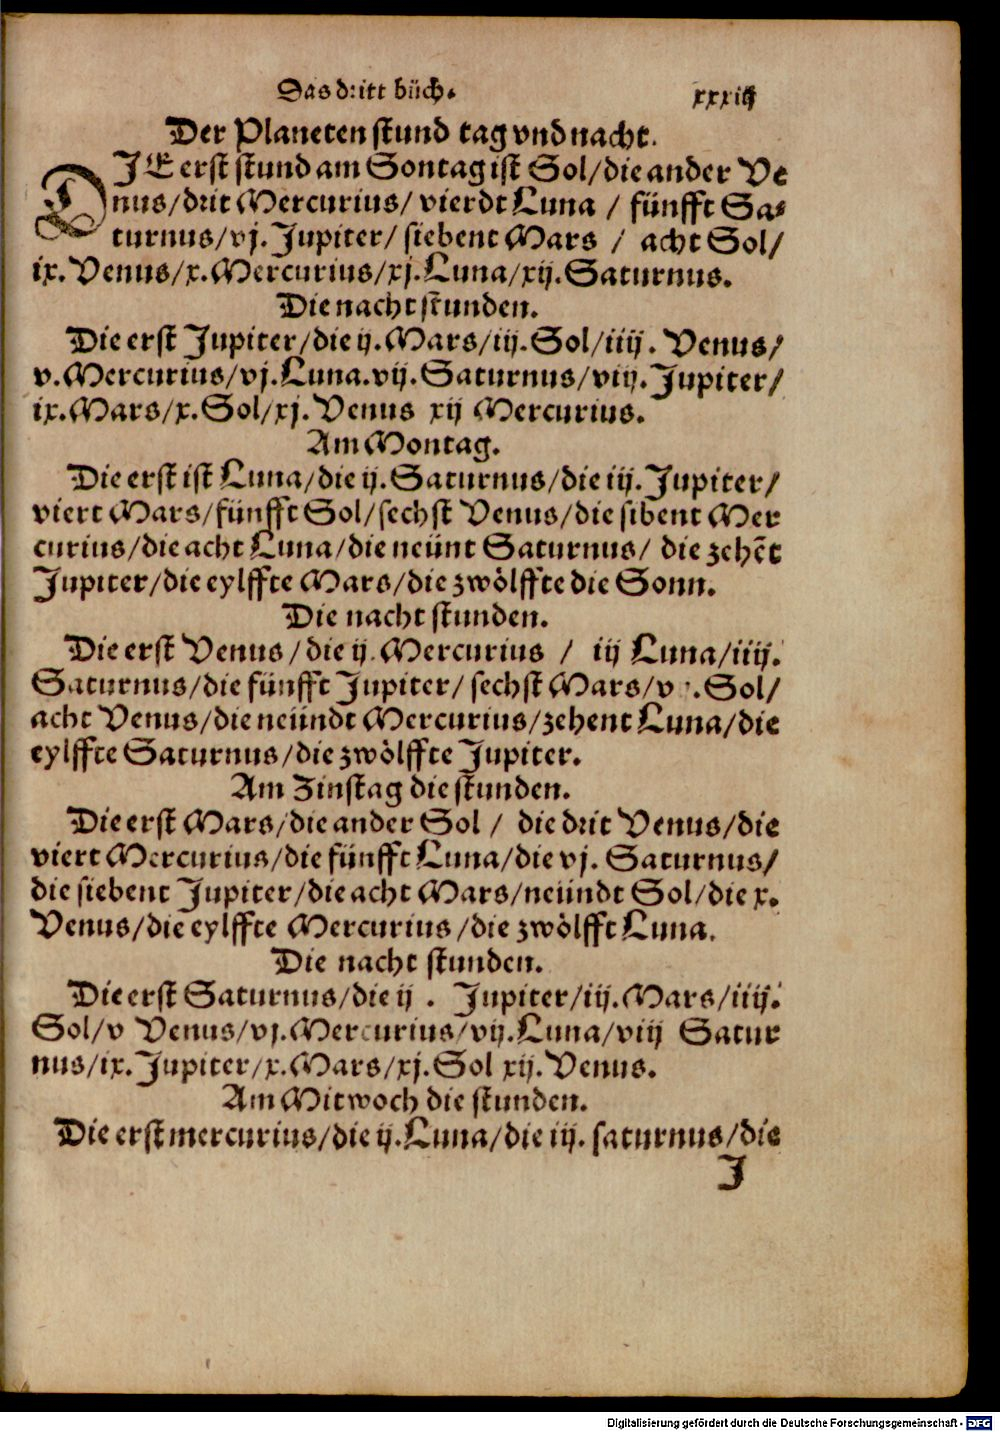 Das dritt bůch. xxxiij
Der Planeten stund tag vnd nacht.
DIE erst stund am Sontag ist Sol/die ander Ve
nus/drit Mercurius/ vierdt Luna / fünfft Sa-
turnus/vj. Jupiter/ siebent Mars / acht Sol/
ix. Venus/x. Mercurius/xj. Luna/xij. Saturnus.
Die nacht stunden.
Die erst Jupiter/die ij. Mars/iij. Sol/iiij. Venus/
v. Mercurius/vj. Luna. vij. Saturnus/viij. Jupiter/
ix. Mars/x. Sol/xj. Venus xij Mercurius.
Am Montag.
Die erst ist Luna/die ij. Saturnus/die iij. Jupiter/
viert Mars/fünfft Sol/sechst Venus/die sibent Mer
curius/die acht Luna/die neünt Saturnus/ die zehẽt
Jupiter/die eylffte Mars/die zwôlffte die Sonn.
Die nacht stunden.
Die erst Venus/die ij. Mercurius / iij Luna/iiij.
Saturnus/die fünfft Jupiter/ sechst Mars/ Sol/
acht Venus/die neündt Mercurius/zehent Luna/die
eylffte Saturnus/die zwôlffte Jupiter.
Am Zinstag die stunden.
Die erst Mars/die ander Sol / die drit Venus/die
viert Mercurius/die fünfft Luna/die vj. Saturnus/
die siebent Jupiter/die acht Mars/neündt Sol/die x.
Venus/die eylffte Mercurius/die zwôlfft Luna.
Die nacht stunden.
Die erst Saturnus/die ij . Jupiter/iij. Mars/iiij.
Sol/v Venus/vj. Mercurius/vij. Luna/viij Satur
nus/ix. Jupiter/x. Mars/xj. Sol xij. Venus.
Am Mitwoch die stunden.
Die erst mercurius/die ij. Luna/die iij. saturnus/die
J
Digitalisierung gefördert durch die Deutsche Forschungsgemeinschaft - DFG